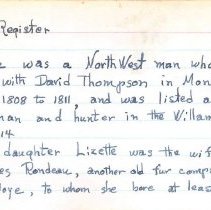 Register
was a NorthWest man who
with David Thompson in Mon
1808 to 1811, and was listed a
man and hunter in the Willam
14.
daughter Lizette was the wif
es Rondeau, another old fur comp
loye, to whom she bore at leas